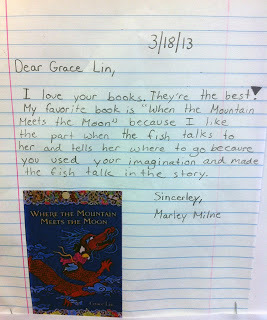 3/18/13
Dear Grace Lin,
I love your books. They're the best!
My favorite book is "When the Mountain
Meets the Moon" because I like
the part when the fish talks to
her and tells her where to go because
you used your imagination and made
the fish talk in the story.
Sincerley,
Marley Milne
WHERE THE MOUNTAIN
MEETS THE MOON
GRACE LIN